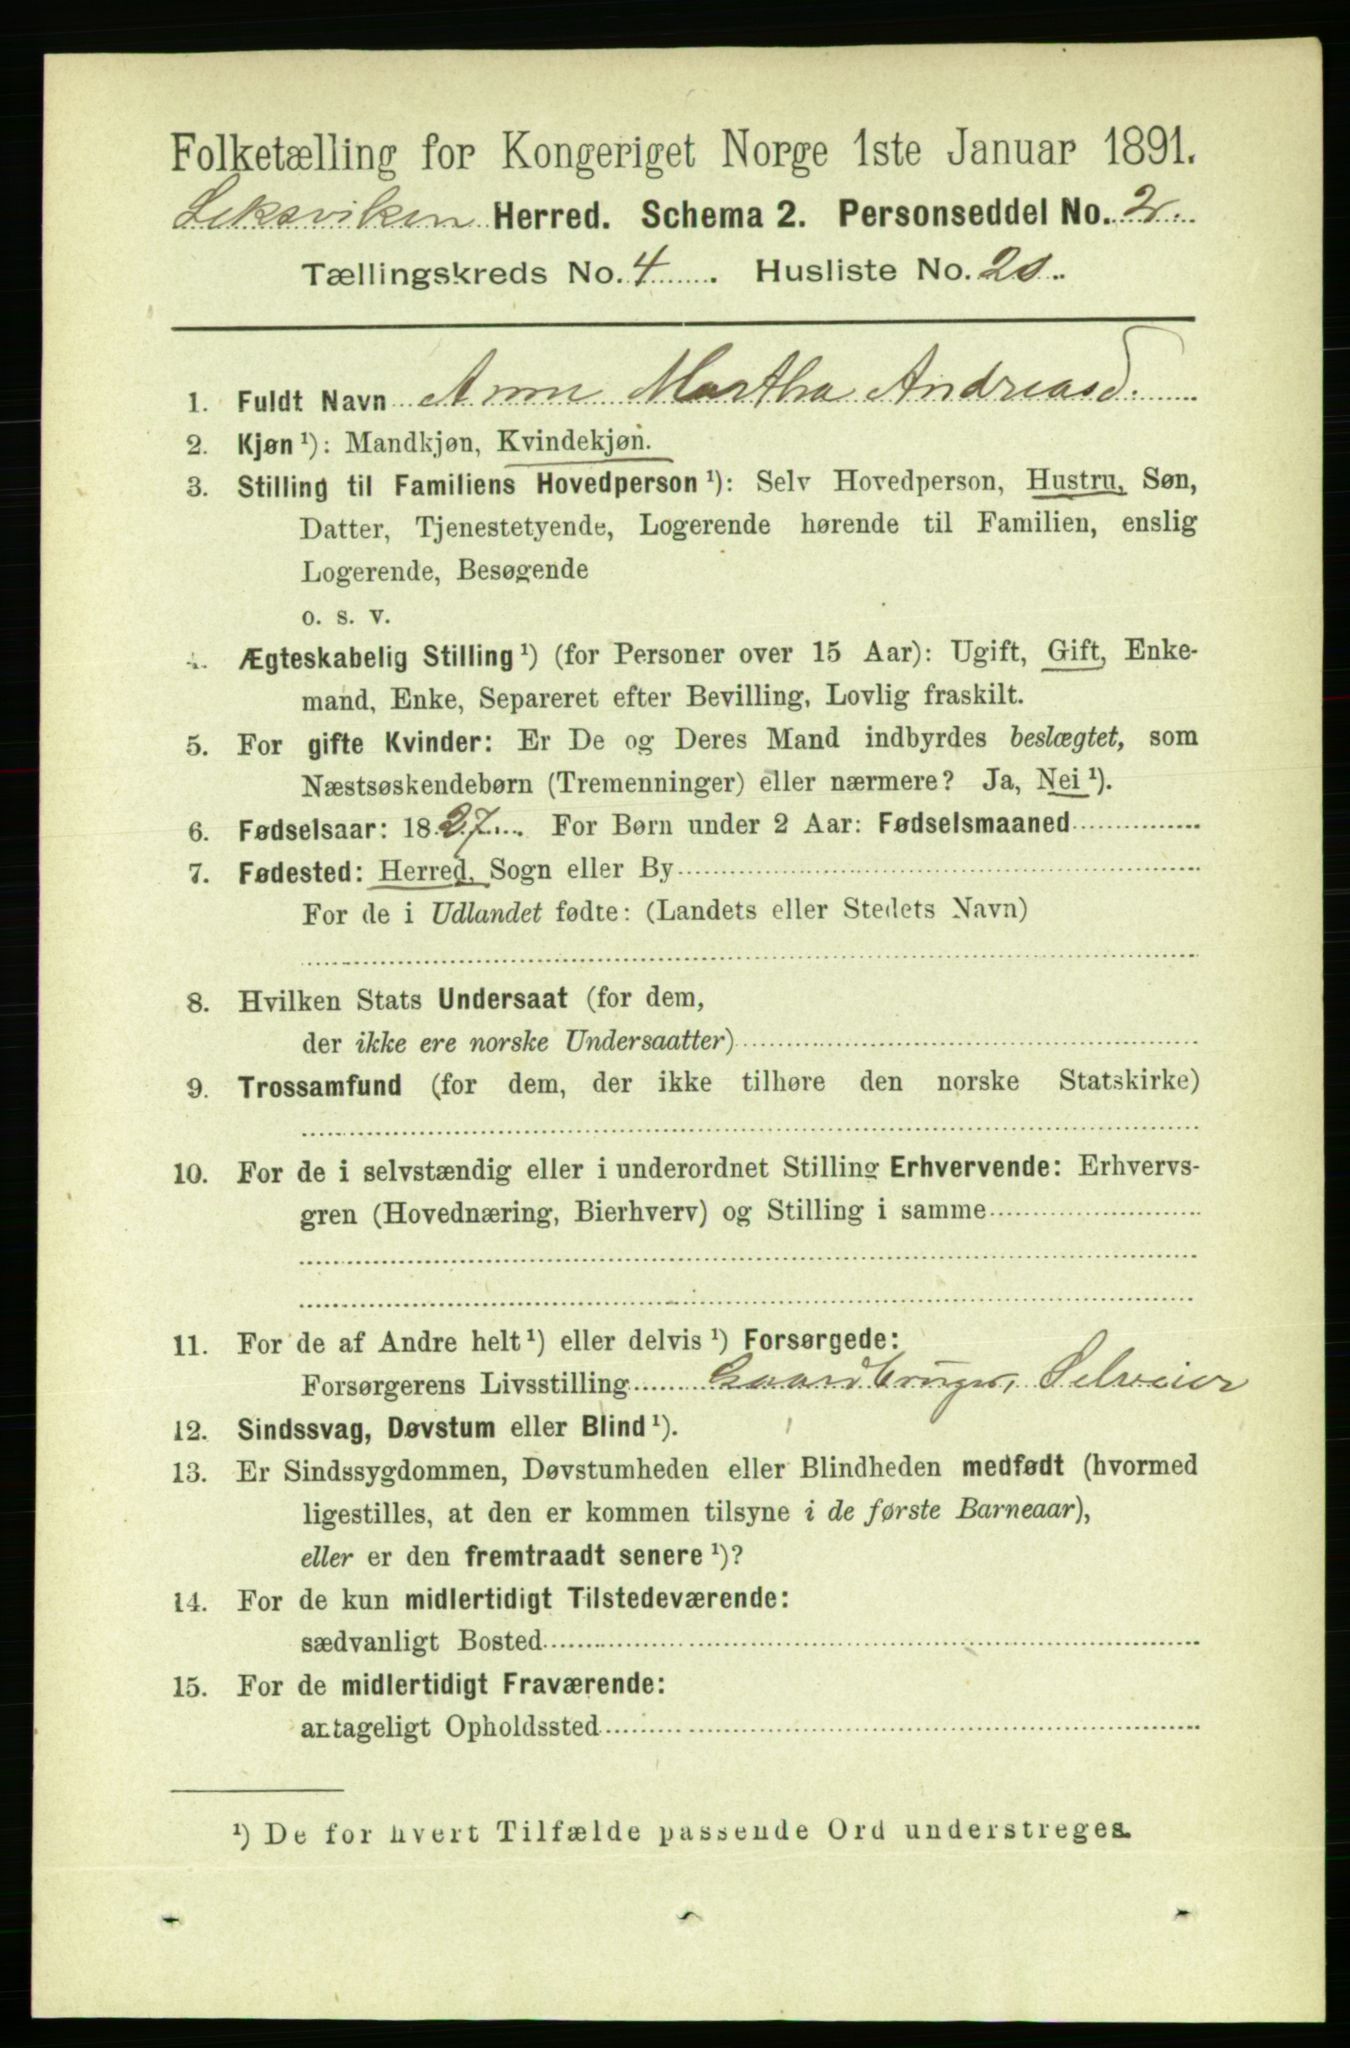 Folketælling for Kongeriget Norge 1ste Januar 1891.
Leksviken Herred. Schema 2. Personseddel No. 2.
Tællingskreds No. 4. Husliste No. 20.
1. Fuldt Navn Anne Martha Andreasd.
2. Kjøn ¹): Mandkjøn, Kvindekjøn.
3. Stilling til Familiens Hovedperson ¹): Selv Hovedperson, Hustru, Søn,
Datter, Tjenestetyende, Logerende hørende til Familien, enslig
Logerende, Besøgende
o. s. v.
4. Ægteskabelig Stilling ¹) (for Personer over 15 Aar): Ugift, Gift, Enke-
mand, Enke, Separeret efter Bevilling, Lovlig fraskilt.
5. For gifte Kvinder: Er De og Deres Mand indbyrdes beslægtet, som
Næstsøskendebørn (Tremenninger) eller nærmere? Ja, Nei ¹).
6. Fødselsaar: 1827. For Børn under 2 Aar: Fødselsmaaned
7. Fødested: Herred, Sogn eller By
For de i Udlandet fødte: (Landets eller Stedets Navn)
8. Hvilken Stats Undersaat (for dem,
der ikke ere norske Undersaatter)
9. Trossamfund (for dem, der ikke tilhøre den norske Statskirke)
10. For de i selvstændig eller i underordnet Stilling Erhvervende: Erhvervs-
gren (Hovednæring, Bierhverv) og Stilling i samme
11. For de af Andre helt ¹) eller delvis ¹) Forsørgede:
Forsørgerens Livsstilling Gaardbruger, Selveier
12. Sindssvag, Døvstum eller Blind ¹).
13. Er Sindssygdommen, Døvstumheden eller Blindheden medfødt (hvormed
ligestilles, at den er kommen tilsyne i de første Barneaar),
eller er den fremtraadt senere ¹)?
14. For de kun midlertidigt Tilstedeværende:
sædvanligt Bosted
15. For de midlertidigt Fraværende:
antageligt Opholdssted
¹) De for hvert Tilfælde passende Ord understreges.